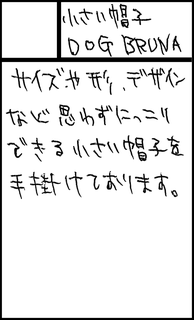 小さい帽子
DOG BRUNA
サイズや形、デザイン
など思わずにっこり
できる小さい帽子を
手掛けております。